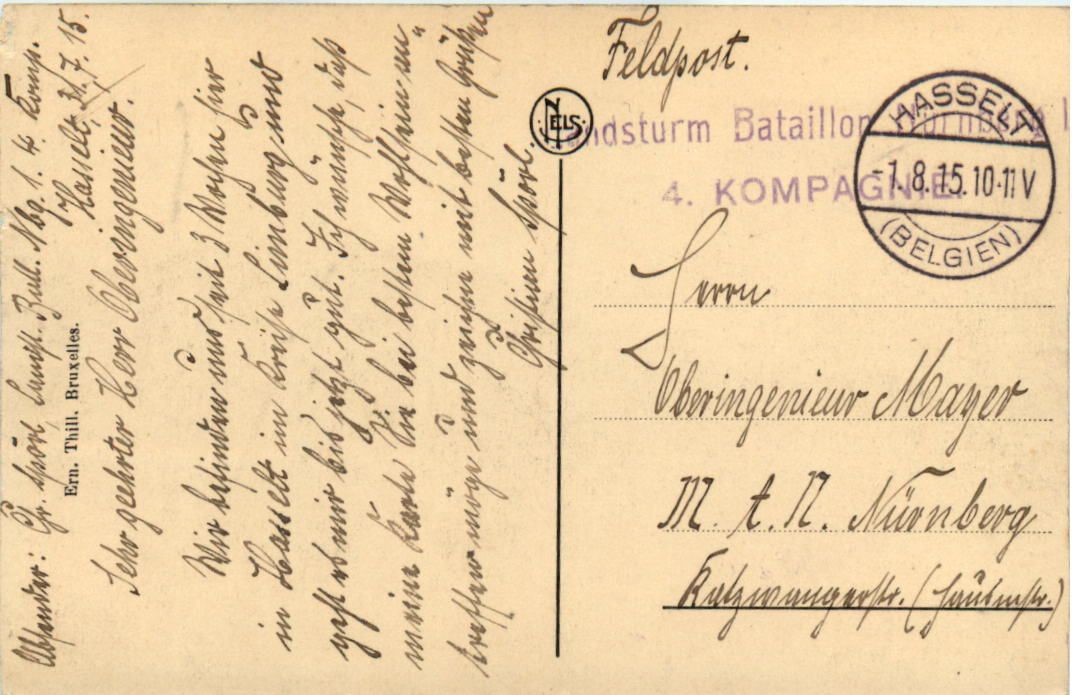 Absender: Chr. Spörl, Landst. Batl. Nbg. 1. 4. Komp.
Hasselt, 31/7. 15.
Sehr geehrter Herr Oberingenieur.
Wir befinden uns seit 3 Wochen hier
in Hasselt im Kreise Limburg und
geht es mir bis jetzt gut. Ich wünsche, daß
meine Karte Sie bei bestem Wohlsein an-
treffen möge und zeichne mit besten Grüßen
Christian Spörl.
Ern. Thill. Bruxelles.
NELS
Feldpost.
Landsturm Bataillon
4. KOMPAGNIE.
HASSELT
-1.8.15.10-11V
(BELGIEN)
Herrn
Oberingenieur Mayer
M. A. N. Nürnberg
Katzwangerstr.